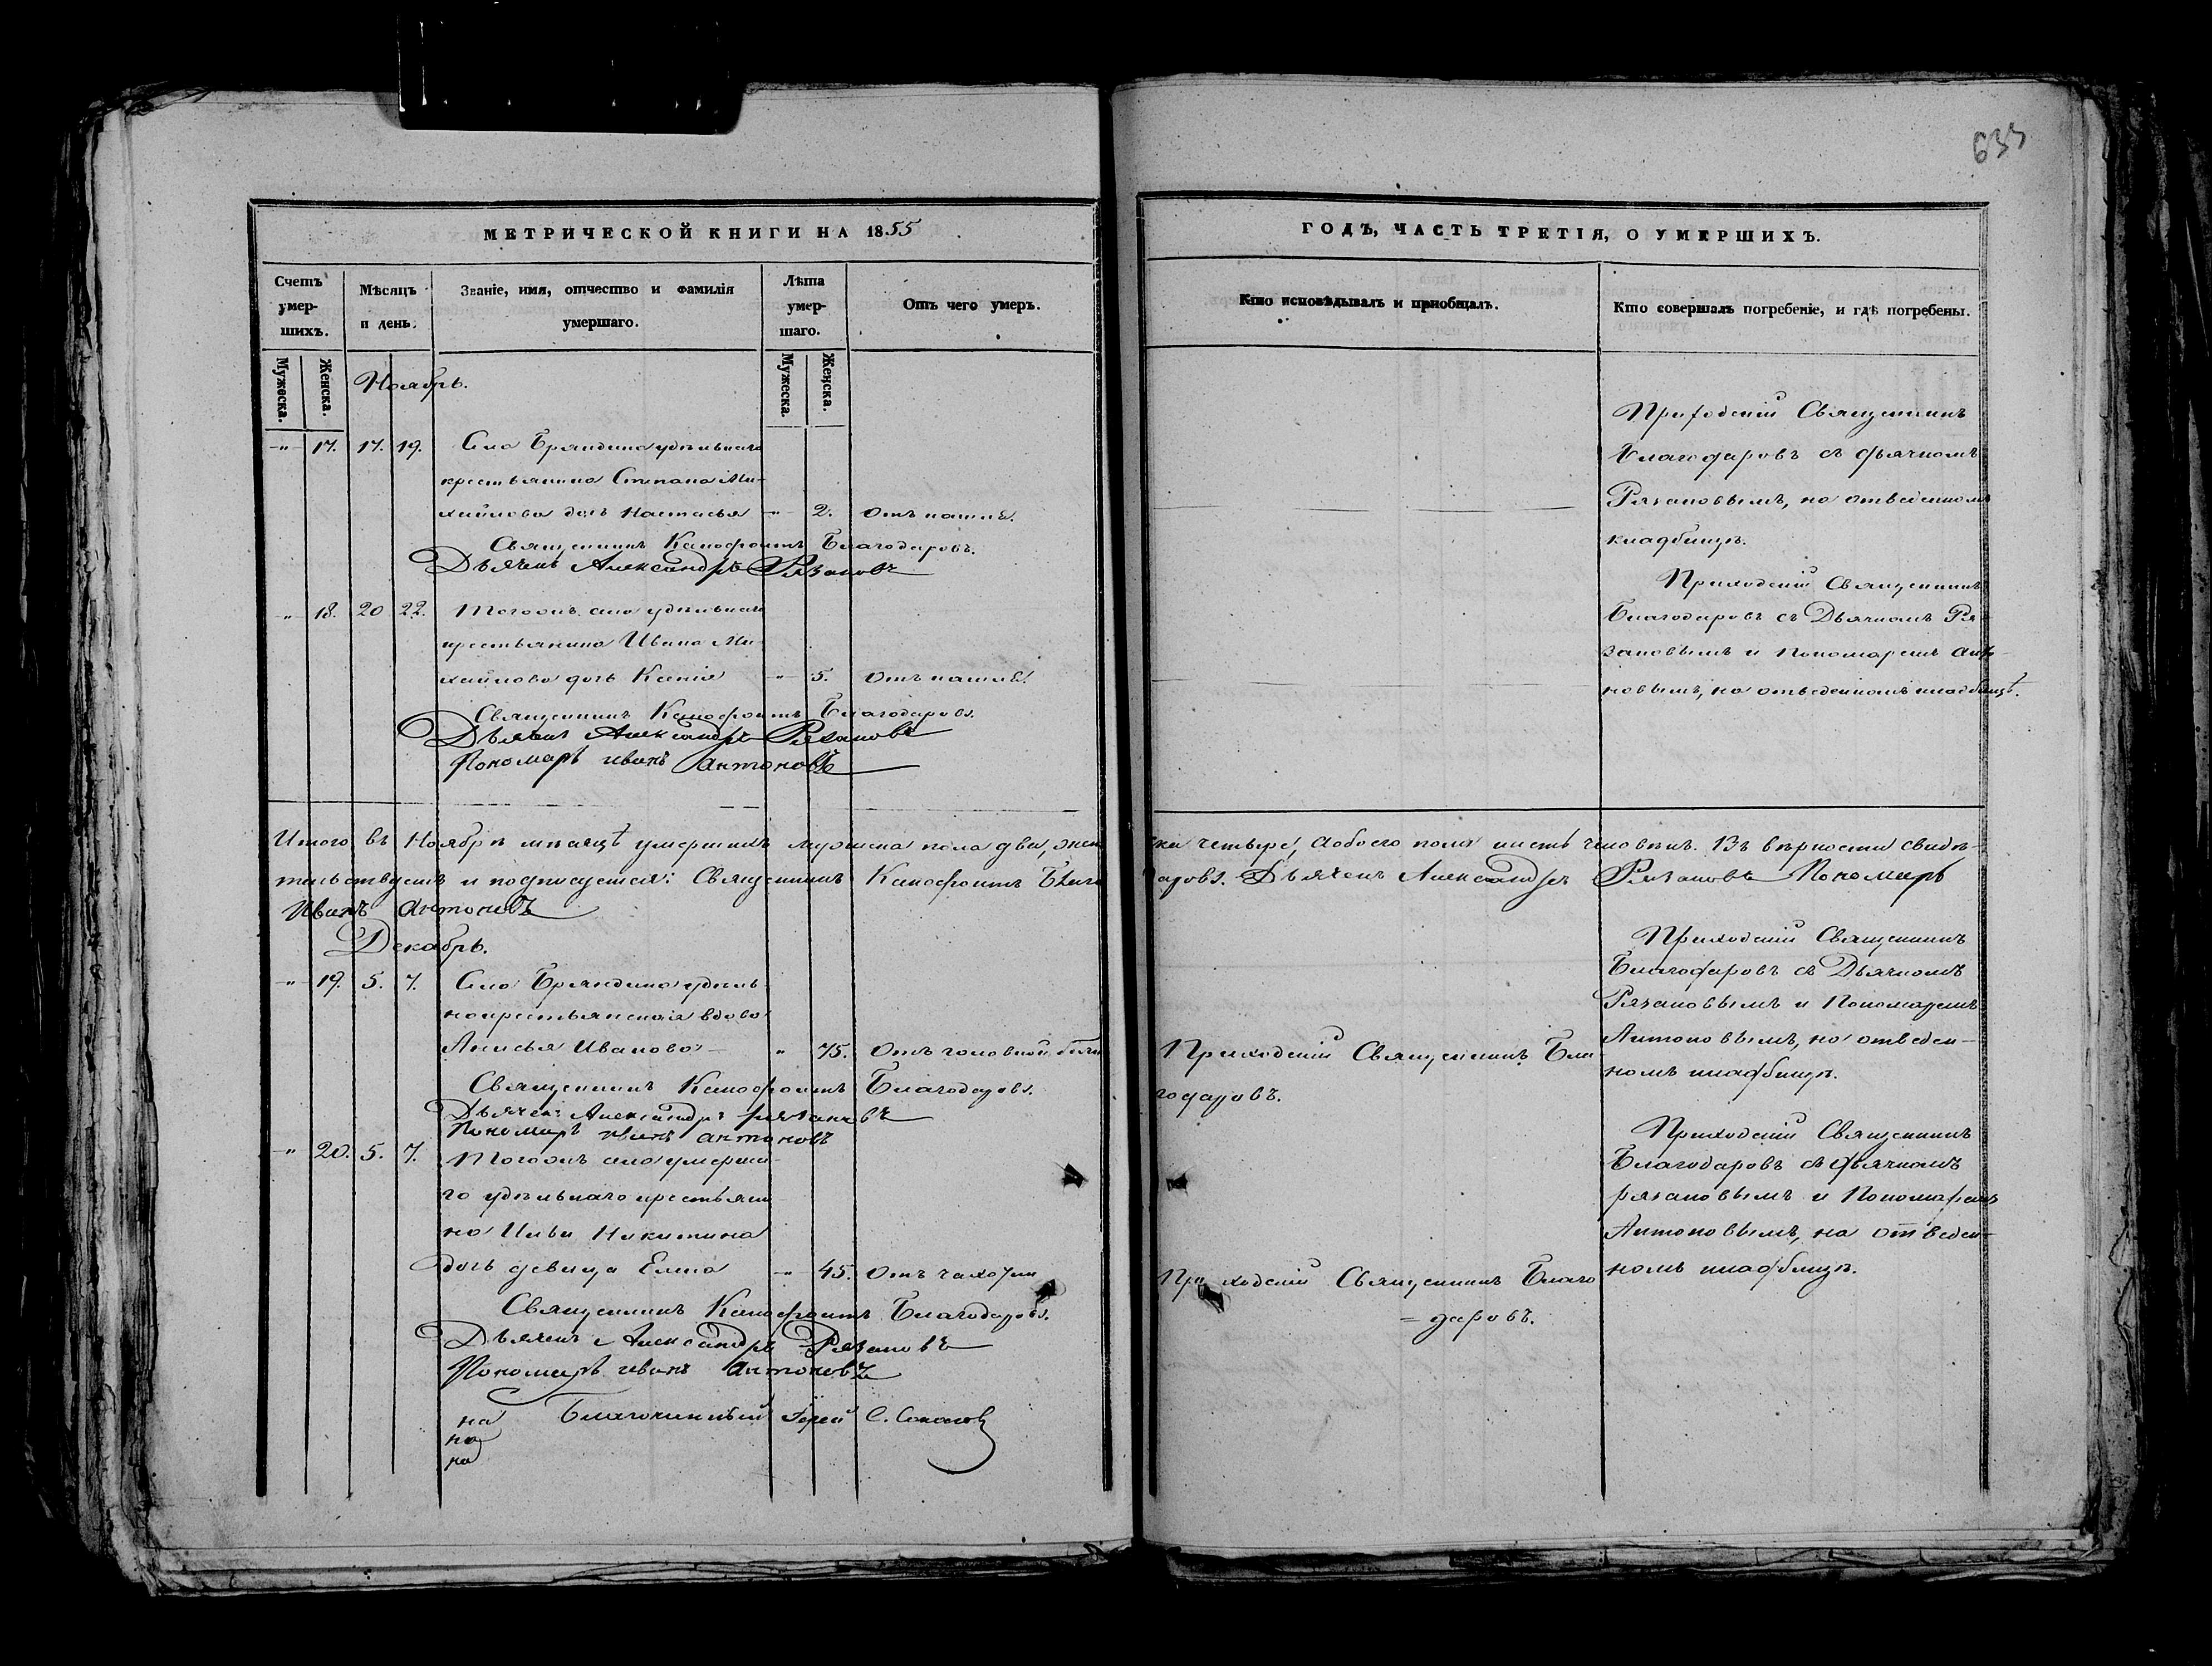 633
МЕТРИЧЕСКОЙ КНИГИ НА 1855
ГОДЪ, ЧАСТЬ ТРЕТІЯ, О УМЕРШИХЪ.
Счетъ умер-шихъ.
Мѣсяцъ и день.
Званіе, имя, отчество и фамилія умершаго.
Лѣта умер-шаго.
Отъ чего умеръ.
Кто исповѣдывалъ и пріобщалъ.
Кто совершалъ погребеніе, и гдѣ погребены.
Мужеска.
Женска.
Мужеска.
Женска.
Ноябрь.
-"- 17. 17. 19. Села Бряндина удѣльнаго
крестьянина Степана Ми-
хайлова дочь Настасья -"- 2. Отъ кашля.
Священникъ Ксенофонтъ Благодаровъ.
Дьячекъ Александръ Рязановъ
Приходскій Священникъ
Благодаровъ съ дьячкомъ
Рязановымъ, на отведенномъ
кладбищѣ.
" 18. 20 22. Тогожъ села удѣльнаго
крестьянина Ивана Ми-
хайлова дочь Ксенія " 5. Отъ кашля.
Священникъ Ксенофонтъ Благодаровъ.
Дьячекъ Александръ Рязановъ
Пономарь иванъ антоновъ
Приходскій Священникъ
Благодаровъ съ Дьячкомъ Ря-
зановымъ и Пономаремъ Анто-
новымъ, на отведенномъ кладбищѣ.
Итого въ Ноябрѣ мѣсяцѣ умершихъ мужеска пола два, жен
ска четыре, а обоего пола шесть человѣкъ. Въ вѣрности свидѣ-
тельствуемъ и подписуемся: Священникъ Ксенофонтъ Благо
даровъ. Дьячекъ Александръ Рязановъ Пономарь
Иванъ антоновъ
Декабрь.
-"- 19. 5. 7. Села Бряндина удѣль
нокрестьянская вдова
Анисья Иванова " 75. Отъ головной боли
Священникъ Ксенофонтъ Благодаровъ.
Дьячекъ Александръ рязановъ
Пономарь иванъ антоновъ
Приходскій Священникъ Бла
годаровъ.
Приходскій Священникъ
Благодаровъ съ Дьячкомъ
Рязановымъ и Пономаремъ
Антоновымъ, на отведен-
номъ кладбищѣ.
-"- 20. 5. 7. Тогожъ села умерша-
го удѣльнаго крестьяни
на Ильи Никитина
дочь девица Елена -"- 45. Отъ чахотки
Священникъ Ксенофонтъ Благодаровъ.
Дьячекъ Александръ Рязановъ
Пономарь иванъ антоновъ
Приходскій Священникъ Благо
= даровъ.
Приходскій Священникъ
Благодаровъ съ Дьячкомъ
рязановымъ и Пономаремъ
Антоновымъ, на отведен-
номъ кладбищѣ.
на Благочинный Іерей С. Соколовъ
на
на